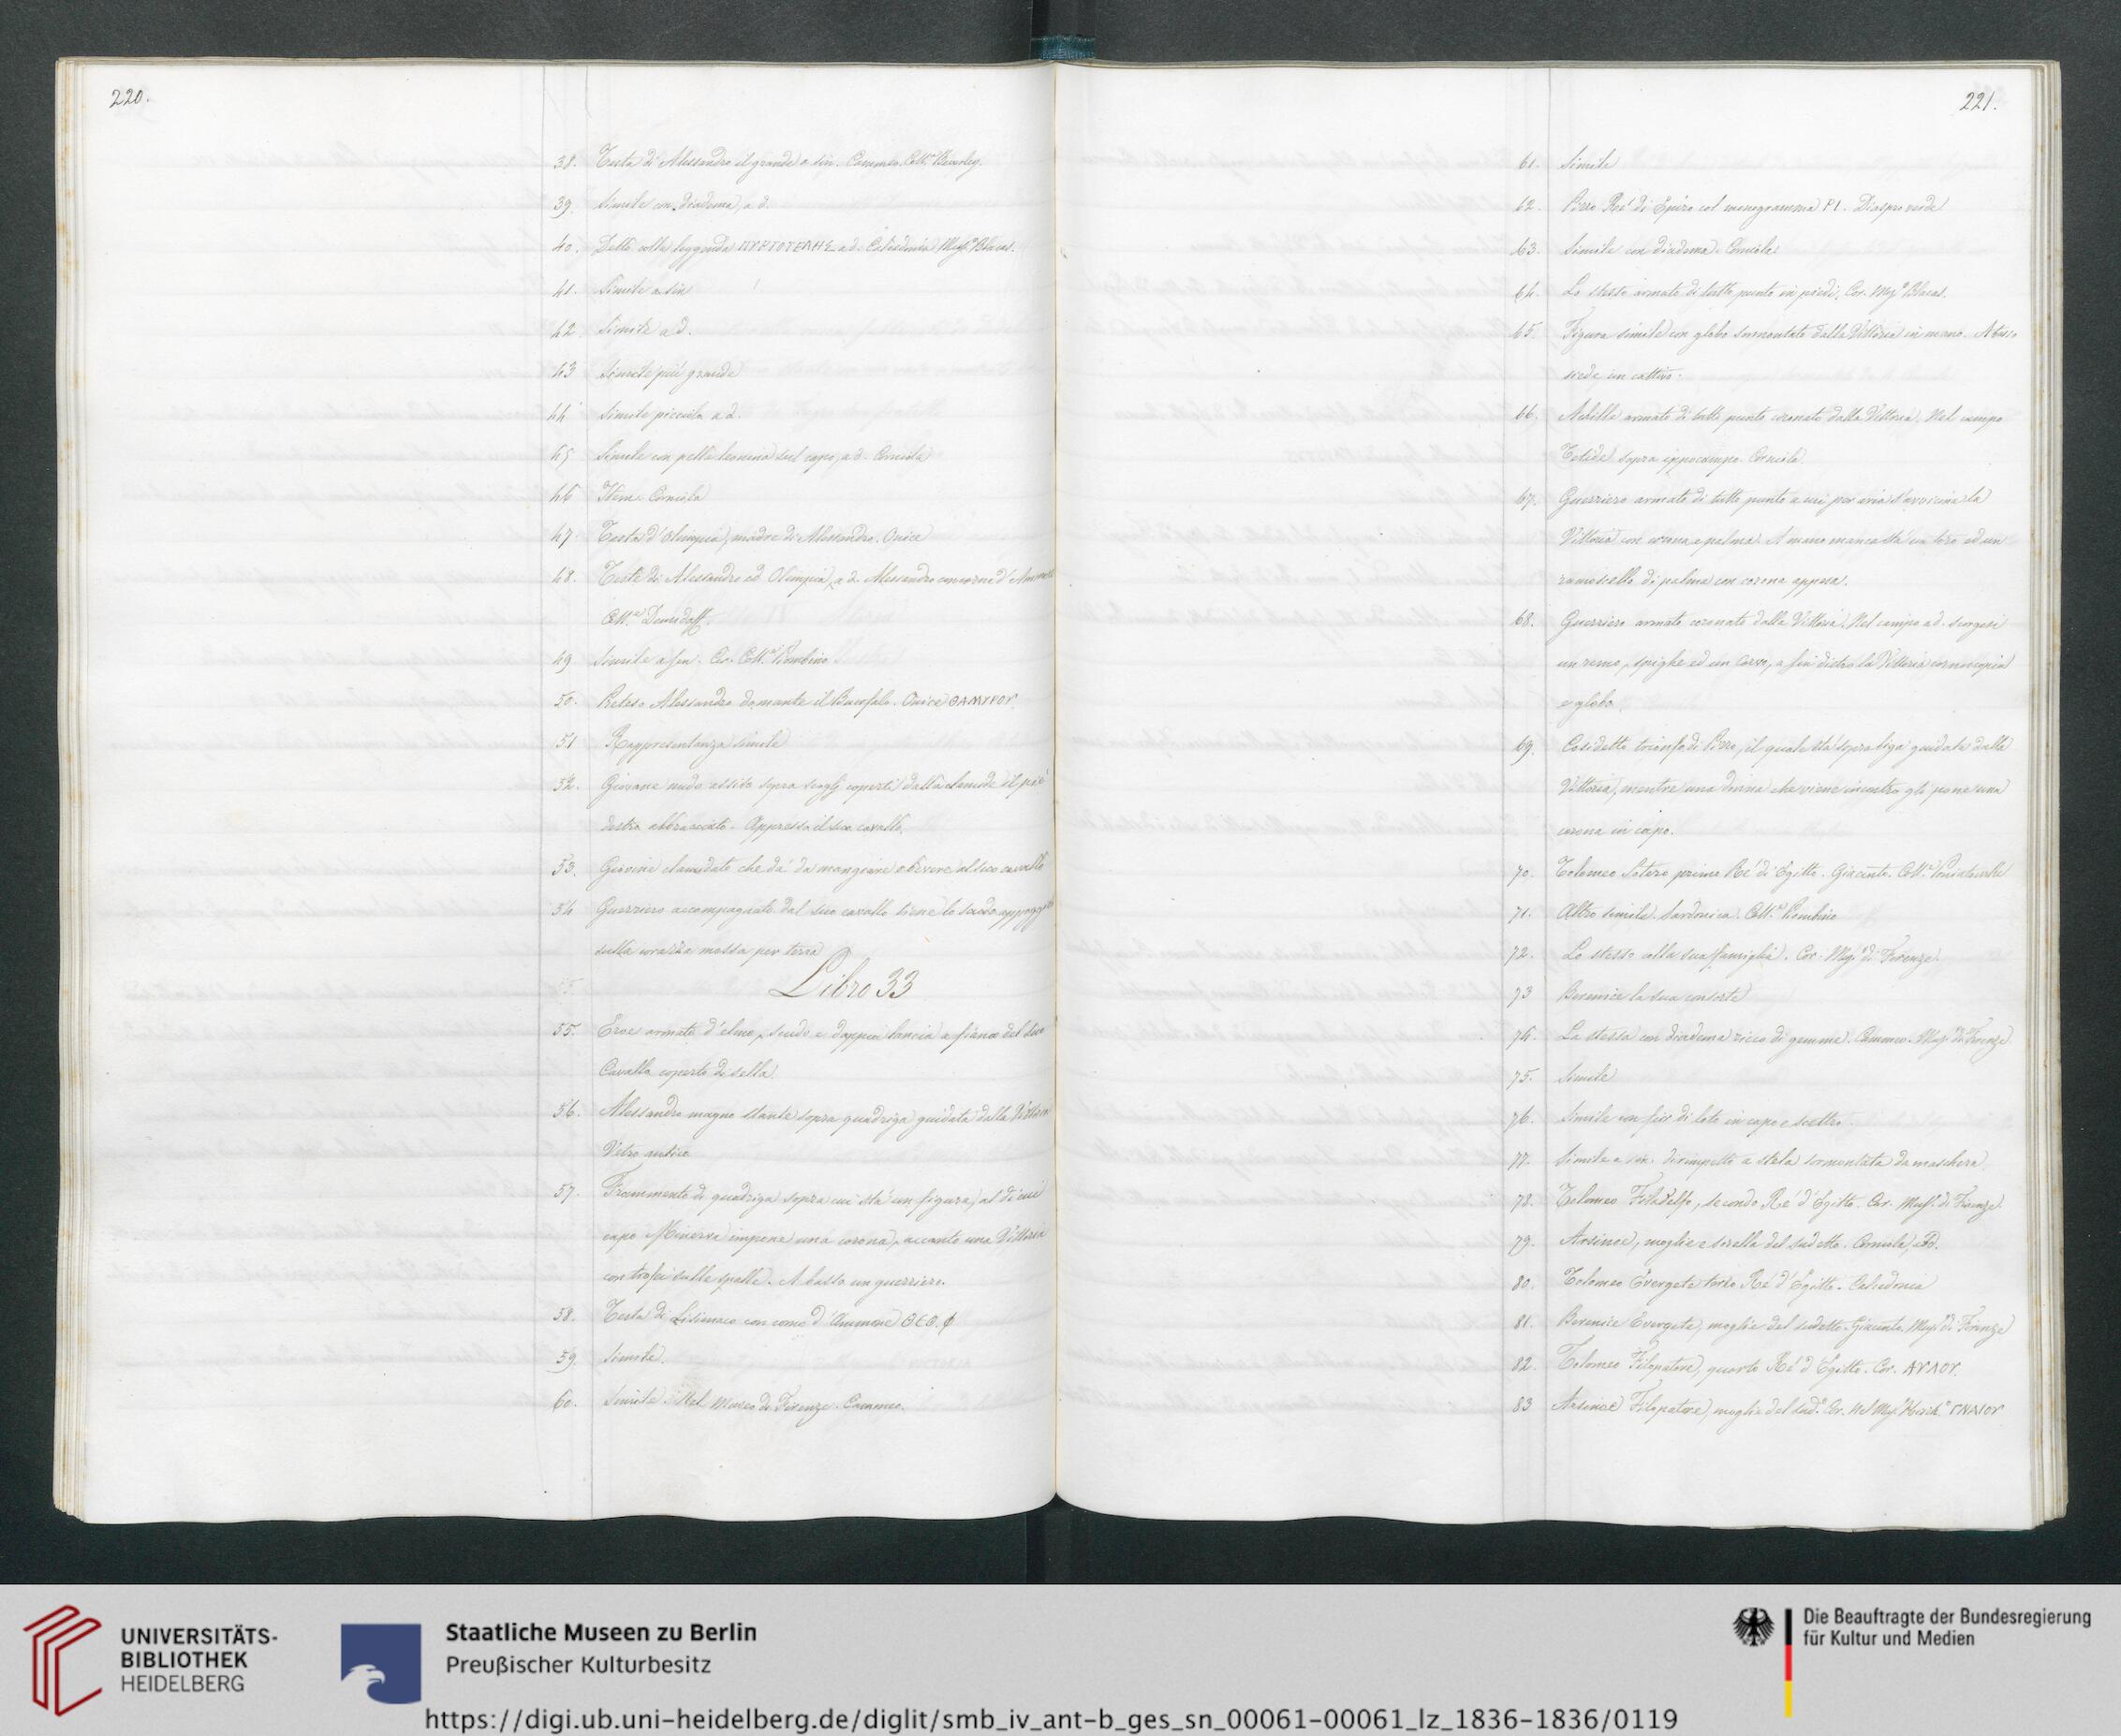 220.
38. Testa di Alessandro il grande a sin. Cammeo. Coll.ne Beverley.
39. Simile con diadema, a d.
40. Detta colla leggenda ΠΥΡΓΟΤΕΛΗΣ a d. Calcedonia Mus.o Blacas.
41. Simile a sin
42. Simile a d.
43 Simile più grande
44 Simile piccola a d.
45 Simile con pelle leonina sul capo, a d. Corniola
46 Item. Corniola
47. Testa d'Olimpia, madre di Alessandro. Onice
48. Teste di Alessandro ed Olimpia, a d. Alessandro con corna d'Ammone
Coll.ne Demidoff.
49 Simile a sin. Cor. Coll.ne Piombino.
50. Preteso Alessandro domante il Bucefalo. Onice ΘΑΜΥΡΟΥ.
51 Rappresentanza simile
52. Giovane nudo assiso sopra scogli coperti dalla clamide il piè
destro abbracciato. Appresso il suo cavallo.
53. Giovine clamidato che dà da mangiare o bevere al suo cavallo
54 Guerriero accompagnato dal suo cavallo tiene lo scudo appoggiato
sulla corazza messa per terra
Libro 33
55. Eroe armato d'elmo, scudo e doppia lancia a fianco del suo
Cavallo coperto di sella.
56. Alessandro magno stante sopra quadriga guidata dalla Vittoria
Vetro antico
57. Frammento di quadriga sopra cui stà un figura, al di cui
capo Minerva impone una corona, accanto una Vittoria
con trofei sulle spalle. A basso un guerriero.
58. Testa di Lisimaco con corno d'Ammone ΘΕΟ.Φ
59. Simile.
60. Simile. Nel Museo di Firenze. Cammeo.
221.
61. Simile
62. Pirro Ré di Epiro col monogramma PI. Diaspro verde
63. Simile con diadema. Corniola.
64. Lo stesso armato di tutto punto in piedi. Cor. Mus.o Blacas.
65. Figura simile con globo surmontato dalla Vittoria in mano. A basso
siede un cattivo.
66. Achille armato di tutto punto coronato dalla Vittoria. Nel campo
Tetide sopra ippocampo. Corniola.
67. Guerriero armato di tutto punto a cui per aria s'avvicina la
Vittoria con corona e palma. A mano manca stà un toro ed un
ramoscello di palma con corona appesa.
68. Guerriero armato coronato dalla Vittoria. Nel campo a d. scorgesi
un remo, spighe ed un Corvo, a sin dietro la Vittoria cornucopia
e globo.
69. Cosidetto trionfo di Pirro, il quale stà sopra biga guidata dalla
Vittoria, mentre una donna che viene incontro gli pone una
corona in capo.
70. Tolomeo Sotero primo Ré di Egitto. Giacinto. Coll.ne Poniatowski
71. Altro simile. Sardonica. Coll.ne Piombino
72. Lo stesso colla sua famiglia. Cor. Mus.o di Firenze.
73 Berenice la sua consorte
74. La stessa con diadema ricco di gemme. Cammeo. Mus.o di Firenze.
75. Simile
76. Simile con fior di loto in capo e scettro.
77. Simile a sin. dirimpetto a stela sormontata da maschera.
78. Tolomeo Filadelfo, secondo Ré d'Egitto. Cor. Mus.o di Firenze.
79. Arsinoe, moglie e sorella del sudetto. Corniola, a d.
80. Tolomeo Evergete terzo Ré d'Egitto. Calcedonia
81. Berenice Evergete, moglie del sudetto. Giacinto. Mus.o di Firenze
82. Tolomeo Filopatore, quarto Ré d'Egitto. Cor. ΑΥΛΟΥ.
83 Arsinoe Filopatore, moglie del sud.o Cor. Nel Mus.o ΓΝΑΙΟΥ
UNIVERSITÄTS-
BIBLIOTHEK
HEIDELBERG
Staatliche Museen zu Berlin
Preußischer Kulturbesitz
Die Beauftragte der Bundesregierung
für Kultur und Medien
https://digi.ub.uni-heidelberg.de/diglit/smb_iv_ant-b_ges_sn_00061-00061_lz_1836-1836/0119